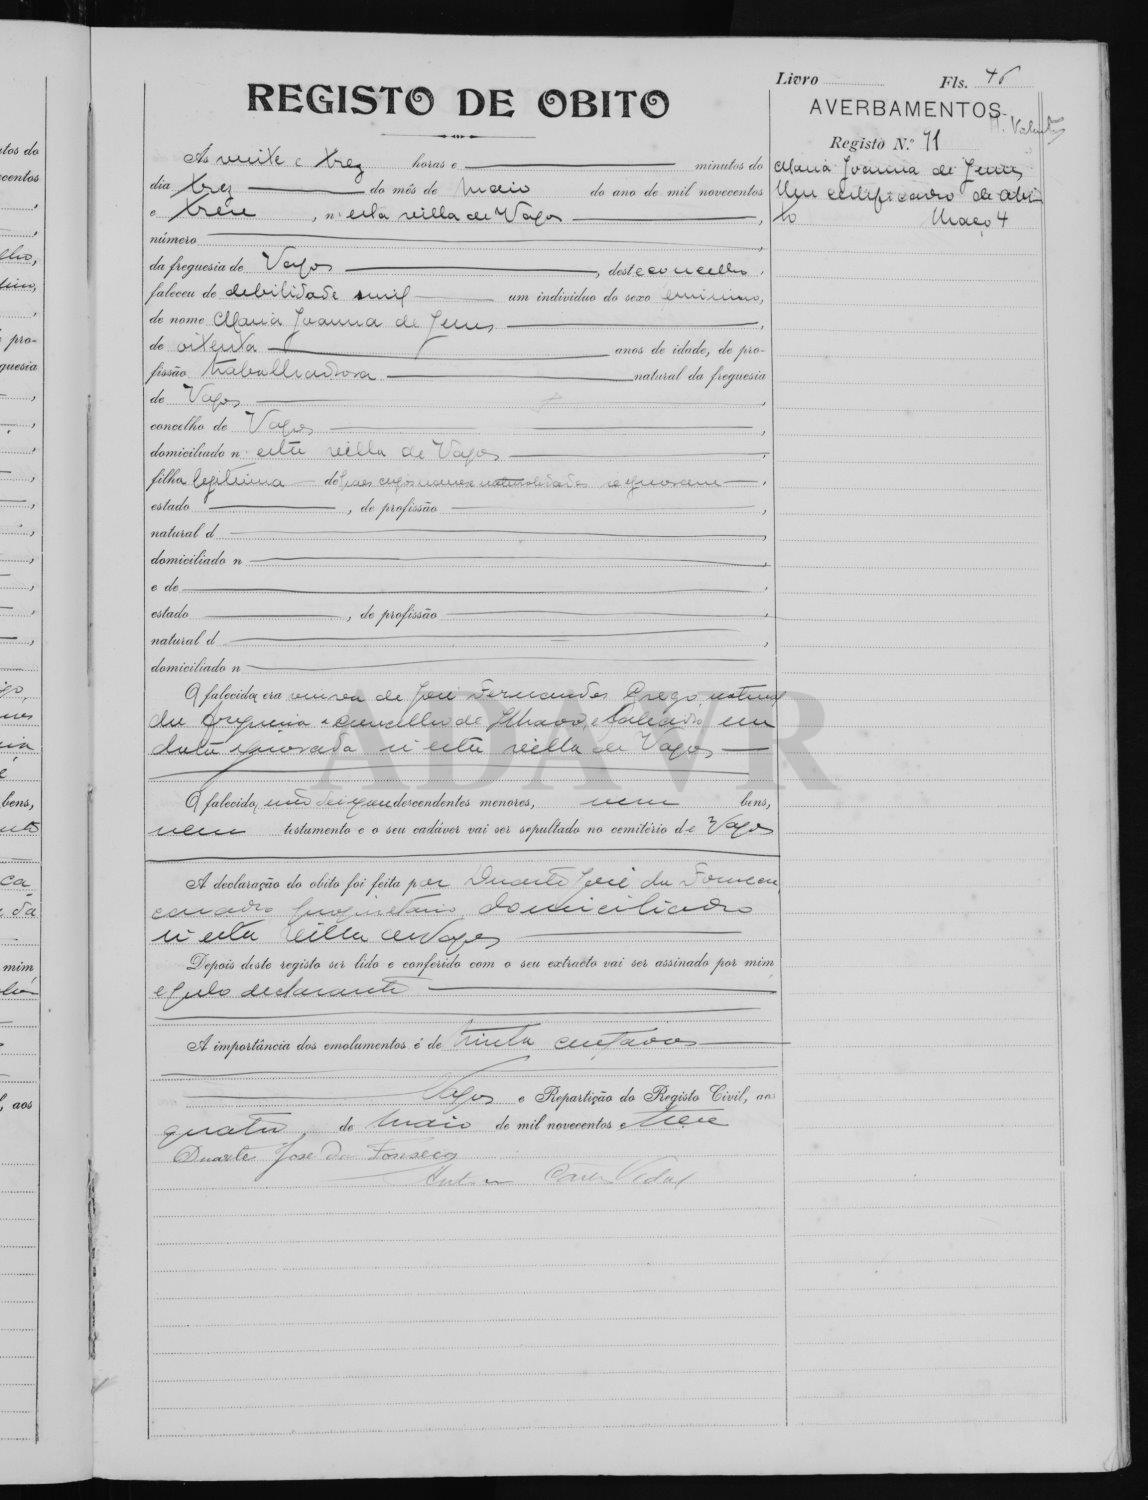 Livro Fls. 46
REGISTO DE OBITO
AVERBAMENTOS
Registo N.º 71
Maria Joanna de Jesus
Um certificado de obi-
to Março 4
Ás vinte e trez horas e minutos do
dia trez do mês de Maio do ano de mil novecentos
e treze, n'esta villa de Vagos,
número,
da freguesia de Vagos, deste concelho,
faleceu de debilidade senil um individuo do sexo feminino,
de nome Maria Joanna de Jesus,
de oitenta anos de idade, de pro-
fissão trabalhadora natural da freguesia
de Vagos,
concelho de Vagos,
domiciliado n'esta villa de Vagos,
filha legitima de paes cujos nomes e naturalidades se ignoram,
estado, de profissão,
natural d,
domiciliado n,
e de,
estado, de profissão,
natural d,
domiciliado n
A falecida era viuva de José Fernandes Grego, natural
da freguesia e concelho de Ilhavo, e falecido, em
data ignorada n'esta villa de Vagos
A falecida, não deixou descendentes menores, nem bens,
nem testamento e o seu cadáver vai ser sepultado no cemitério de Vagos
A declaração do obito foi feita por Duarte José da Fonseca
casado proprietario, domiciliado
n'esta villa de Vagos
Depois deste registo ser lido e conferido com o seu extracto vai ser assinado por mim
e pelo declarante
A importância dos emolumentos é de trinta centavos
Vagos e Repartição do Registo Civil, aos
quatro, de Maio de mil novecentos e treze
Duarte José da Fonseca
Vidal
ADAVR